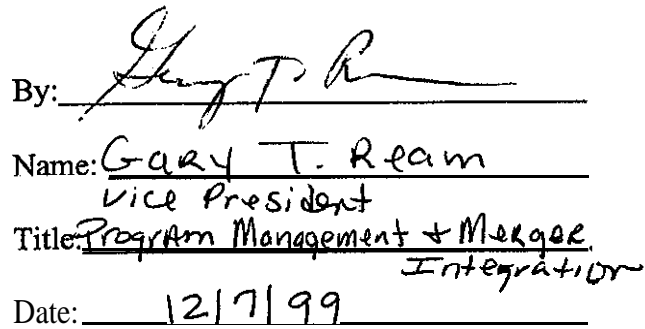 By: Gary T. R
Name: Gary T. Ream
Vice President
Title: Program Management + Merger
Integration
Date: 12/7/99